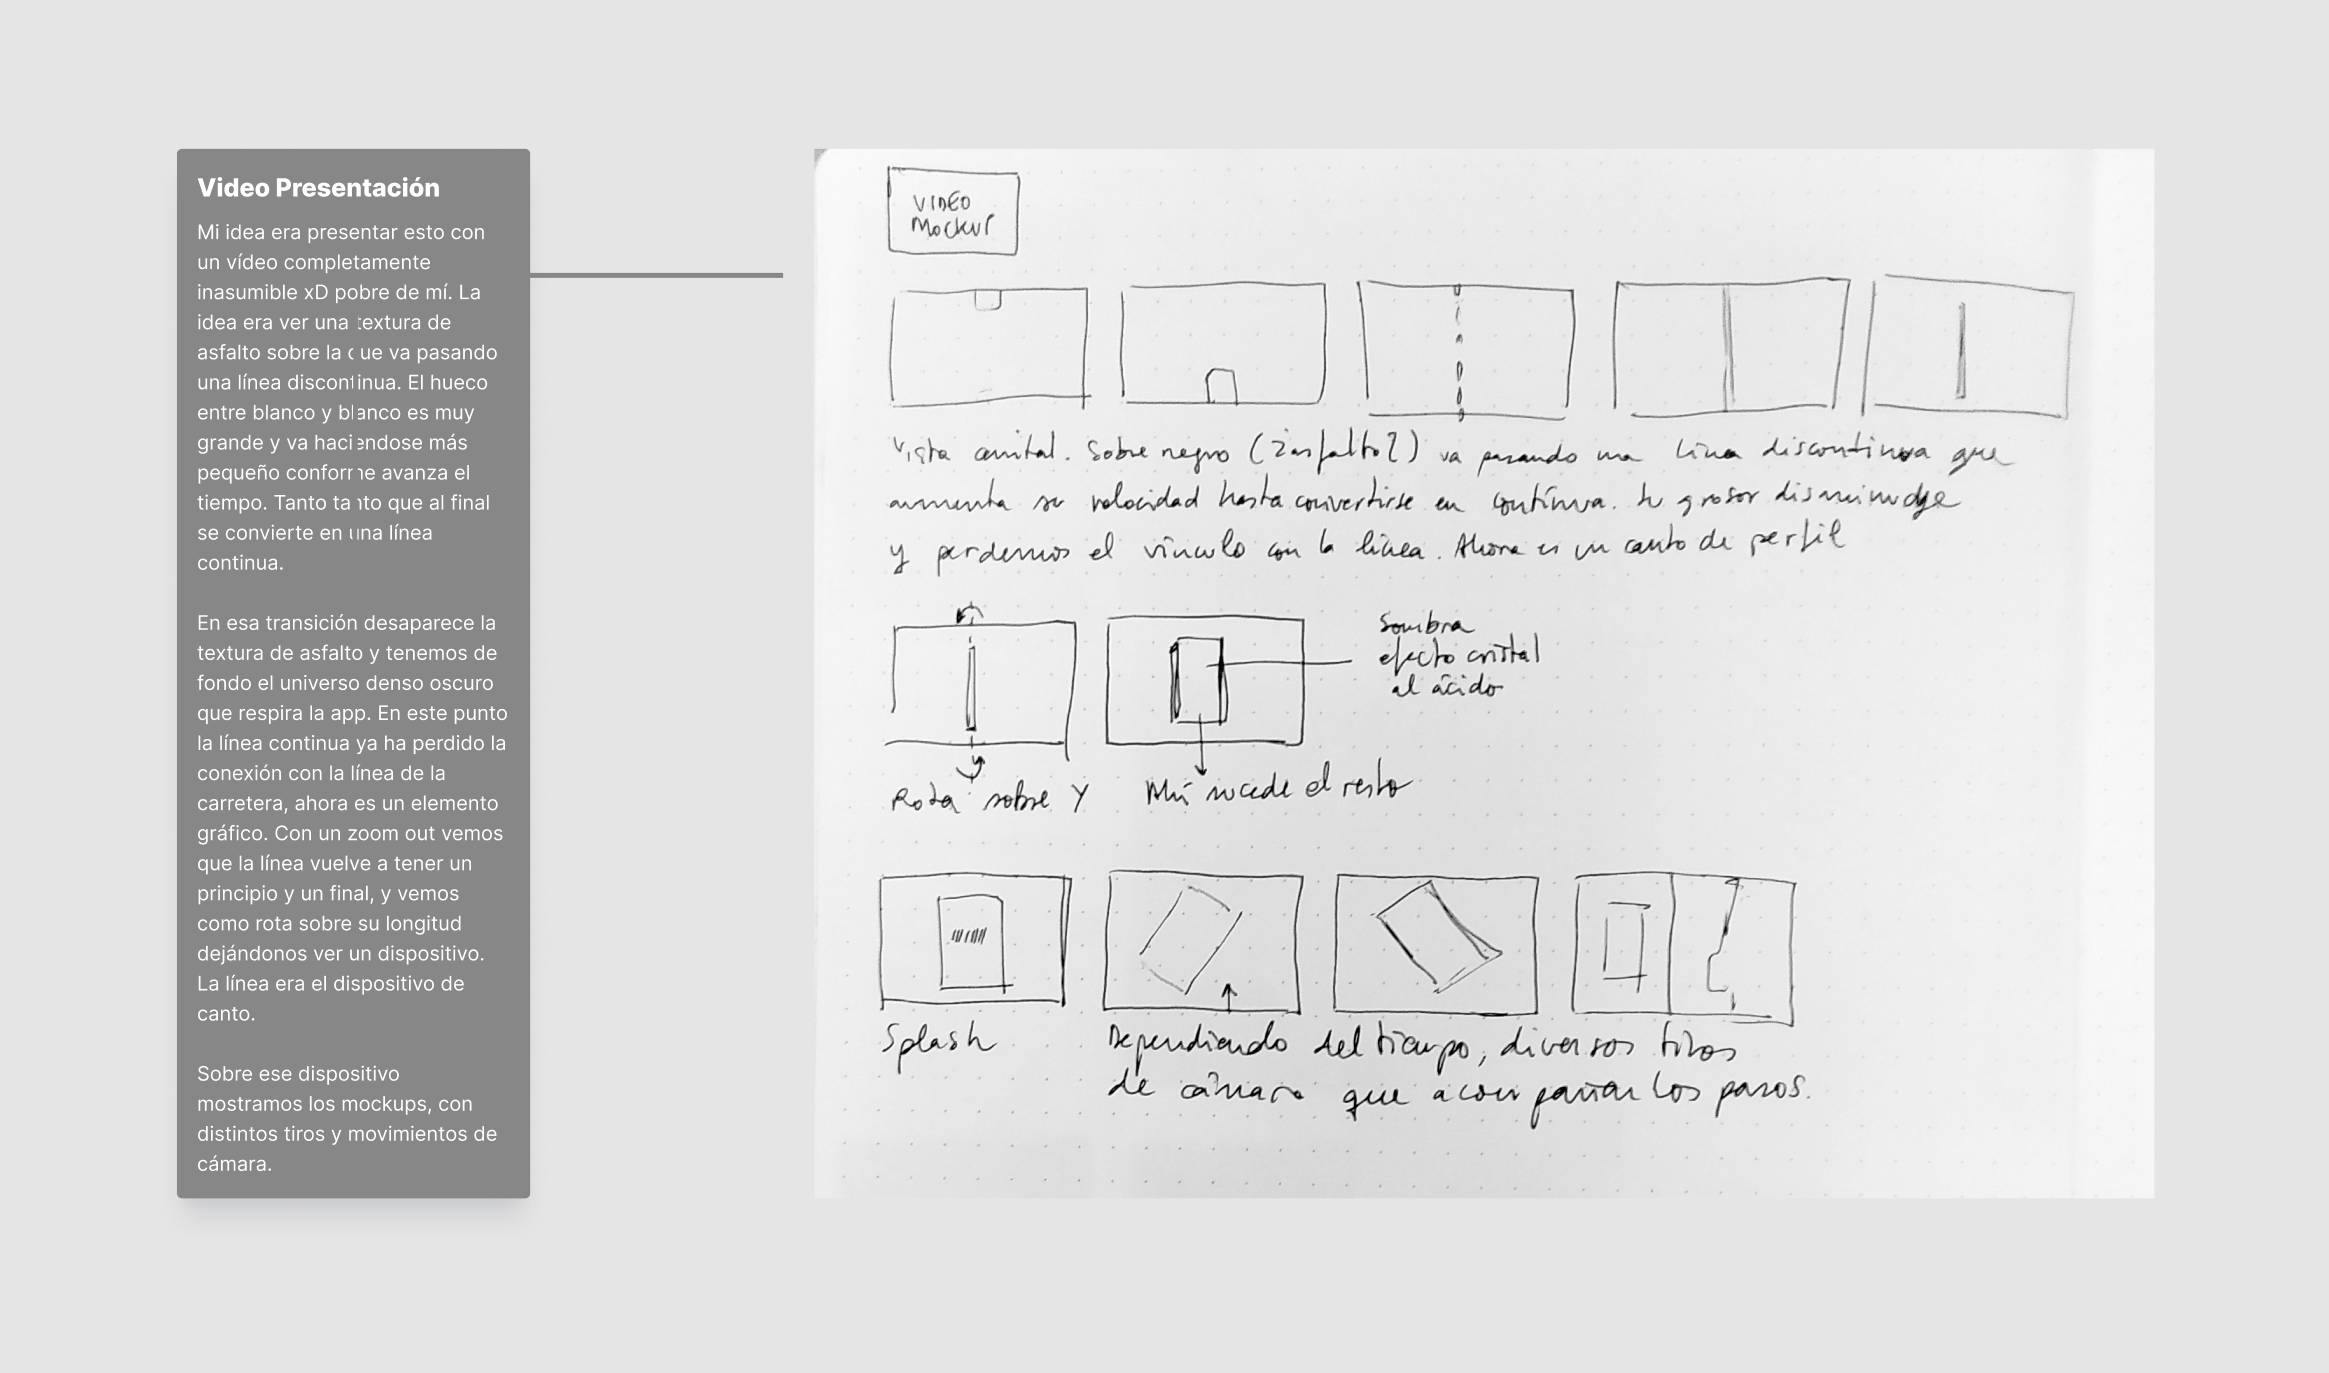 Video Presentación
Mi idea era presentar esto con
un vídeo completamente
inasumible xD pobre de mí. La
idea era ver una textura de
asfalto sobre la que va pasando
una línea discontinua. El hueco
entre blanco y blanco es muy
grande y va haciéndose más
pequeño conforme avanza el
tiempo. Tanto tanto que al final
se convierte en una línea
continua.
En esa transición desaparece la
textura de asfalto y tenemos de
fondo el universo denso oscuro
que respira la app. En este punto
la línea continua ya ha perdido la
conexión con la línea de la
carretera, ahora es un elemento
gráfico. Con un zoom out vemos
que la línea vuelve a tener un
principio y un final, y vemos
como rota sobre su longitud
dejándonos ver un dispositivo.
La línea era el dispositivo de
canto.
Sobre ese dispositivo
mostramos los mockups, con
distintos tiros y movimientos de
cámara.
VIDEO
Mockup
Vista cenital. Sobre negro (¿asfalto?) va pasando una línea discontinua que
aumenta su velocidad hasta convertirse en contínua. Su grosor disminuye
y perdemos el vínculo con la línea. Ahora es un canto de perfil
Sombra
efecto cristal
al ácido
Rota sobre Y
Ahí sucede el resto
Splash
Dependiendo del tiempo, diversos tiros
de cámara que acompañan los pasos.